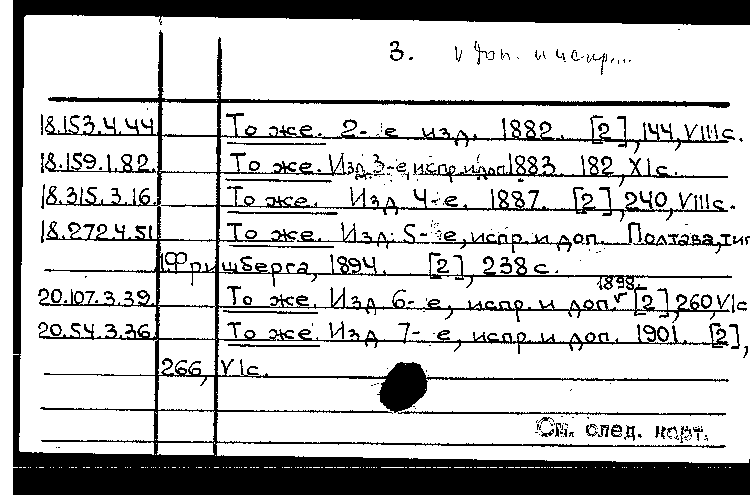 3. и доп. и испр...
18.153.4.44 То же. 2-е изд. 1882. [2], 144, VIII с.
18.159.1.82. То же. Изд 3-е, испр. и доп 1883. 182, XI с.
18.315.3.16. То же. Изд 4-е. 1887. [2], 240, VIII с.
18.272.4.51 То же. Изд. 5-е, испр. и доп. Полтава, тип
Фришберга, 1894. [2], 238 с.
1898.
20.107.3.39. То же. Изд 6-е, испр. и доп. [2], 260, VI с
20.54.3.36. То же. Изд 7-е, испр. и доп. 1901. [2],
266, VI с.
См. след. карт.